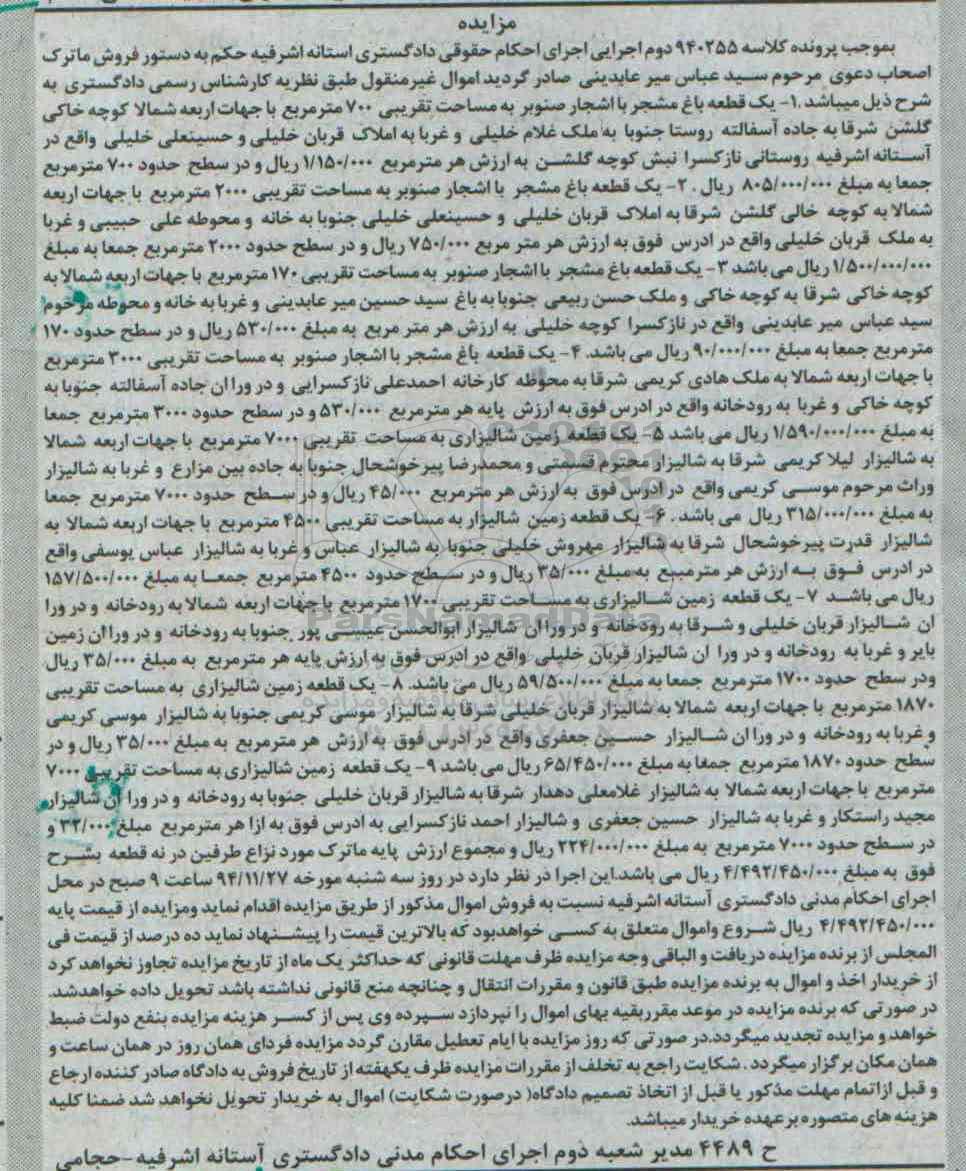 مزایده
بموجب پرونده کلاسه ۹۴۰۲۵۵ دوم اجرایی اجرای احکام حقوقی دادگستری استانه اشرفیه حکم به دستور فروش ماترک
اصحاب دعوی مرحوم سید عباس میر عابدینی صادر گردید اموال غیرمنقول طبق نظریه کارشناس رسمی دادگستری به
شرح ذیل میباشد .۱- یک قطعه باغ مشجر با اشجار صنوبر به مساحت تقریبی ۷۰۰ مترمربع با جهات اربعه شمالا کوچه خاکی
گلشن شرقا به جاده آسفالته روستا جنوبا به ملک غلام خلیلی و غربا به املاک قربان خلیلی و حسینعلی خلیلی واقع در
آستانه اشرفیه روستانی نازکسرا نبش کوچه گلشن به ارزش هر مترمربع ۱/۱۵۰/۰۰۰ ریال و در سطح حدود ۷۰۰ مترمربع
جمعا به مبلغ ۸۰۵/۰۰۰/۰۰۰ ریال . ۲- یک قطعه باغ مشجر با اشجار صنوبر به مساحت تقریبی ۲۰۰۰ مترمربع با جهات اربعه
شمالا به کوچه خالی گلشن شرقا به املاک قربان خلیلی و حسینعلی خلیلی جنوبا به خانه و محوطه علی حبیبی و غربا
به ملک قربان خلیلی واقع در ادرس فوق به ارزش هر متر مربع ۷۵۰/۰۰۰ ریال و در سطح حدود ۲۰۰۰ مترمربع جمعا به مبلغ
۱/۵۰۰/۰۰۰/۰۰۰ ریال می باشد ۳- یک قطعه باغ مشجر با اشجار صنوبر به مساحت تقریبی ۱۷۰ مترمربع با جهات اربعه شمالا به
کوچه خاکی شرقا به کوچه خاکی و ملک حسن ربیعی جنوبا به باغ سید حسین میر عابدینی و غربا به خانه و محوطه مرحوم
سید عباس میر عابدینی واقع در نازکسرا کوچه خلیلی به ارزش هر متر مربع به مبلغ ۵۳۰/۰۰۰ ریال و در سطح حدود ۱۷۰
مترمربع جمعا به مبلغ ۹۰/۰۰۰/۰۰۰ ریال می باشد. ۴- یک قطعه باغ مشجر با اشجار صنوبر به مساحت تقریبی ۳۰۰۰ مترمربع
با جهات اربعه شمالا به ملک هادی کریمی شرقا به محوطه کارخانه احمدعلی نازکسرایی و در ورا ان جاده آسفالته جنوبا به
کوچه خاکی و غربا به رودخانه واقع در ادرس فوق به ارزش پایه هر مترمربع ۵۳۰/۰۰۰ و در سطح حدود ۳۰۰۰ مترمربع جمعا
به مبلغ ۱/۵۹۰/۰۰۰/۰۰۰ ریال می باشد ۵- یک قطعه زمین شالیزاری به مساحت تقریبی ۷۰۰۰ مترمربع با جهات اربعه شمالا
به شالیزار لیلا کریمی شرقا به شالیزار محترم قسمتی و محمدرضا پیرخوشحال جنوبا به جاده بین مزارع و غربا به شالیزار
وراث مرحوم موسی کریمی واقع در ادرس فوق به ارزش هر مترمربع ۴۵/۰۰۰ ریال و در سطح حدود ۷۰۰۰ مترمربع جمعا
به مبلغ ۳۱۵/۰۰۰/۰۰۰ ریال می باشد . ۶- یک قطعه زمین شالیزار به مساحت تقریبی ۴۵۰۰ مترمربع با جهات اربعه شمالا به
شالیزار قدرت پیرخوشحال شرقا به شالیزار مهروش خلیلی جنوبا به شالیزار عباس و غربا به شالیزار عباس یوسفی واقع
در ادرس فوق به ارزش هر مترمببع به مبلغ ۳۵/۰۰۰ ریال و در سطح حدود ۴۵۰۰ مترمربع جمعا به مبلغ ۱۵۷/۵۰۰/۰۰۰
ریال می باشد ۷- یک قطعه زمین شالیزاری به مساحت تقریبی ۱۷۰۰ مترمربع با جهات اربعه شمالا به رودخانه و در ورا
ان شالیزار قربان خلیلی و شرقا به رودخانه و در ورا ان شالیزار ابوالحسن عیسی پور جنوبا به رودخانه و در ورا ان زمین
بایر و غربا به رودخانه و در ورا ان شالیزار قربان خلیلی واقع در ادرس فوق به ارزش پایه هر مترمربع به مبلغ ۳۵/۰۰۰ ریال
ودر سطح حدود ۱۷۰۰ مترمربع جمعا به مبلغ ۵۹/۵۰۰/۰۰۰ ریال می باشد. ۸- یک قطعه زمین شالیزاری به مساحت تقریبی
۱۸۷۰ مترمربع با جهات اربعه شمالا به شالیزار قربان خلیلی شرقا به شالیزار موسی کریمی جنوبا به شالیزار موسی کریمی
و غربا به رودخانه و در ورا ان شالیزار حسین جعفری واقع در ادرس فوق به ارزش هر مترمربع به مبلغ ۳۵/۰۰۰ ریال و در
سطح حدود ۱۸۷۰ مترمربع جمعا به مبلغ ۶۵/۴۵۰/۰۰۰ ریال می باشد ۹- یک قطعه زمین شالیزاری به مساحت تقریبی ۷۰۰۰
مترمربع با جهات اربعه شمالا به شالیزار غلامعلی دهدار شرقا به شالیزار قربان خلیلی جنوبا به رودخانه و در ورا ان شالیزار
مجید راستکار و غربا به شالیزار حسین جعفری و شالیزار احمد نازکسرایی به ادرس فوق به ازا هر مترمربع مبلغ ۳۲/۰۰۰ و
در سطح حدود ۷۰۰۰ مترمربع به مبلغ ۲۲۴/۰۰۰/۰۰۰ ریال و مجموع ارزش پایه ماترک مورد نزاع طرفین در نه قطعه بشرح
فوق به مبلغ ۴/۴۹۲/۴۵۰/۰۰۰ ریال می باشد.این اجرا در نظر دارد در روز سه شنبه مورخه ۹۴/۱۱/۲۷ ساعت ۹ صبح در محل
اجرای احکام مدنی دادگستری آستانه اشرفیه نسبت به فروش اموال مذکور از طریق مزایده اقدام نماید ومزایده از قیمت پایه
۴/۴۹۲/۴۵۰/۰۰۰ ریال شروع واموال متعلق به کسی خواهدبود که بالاترین قیمت را پیشنهاد نماید ده درصد از قیمت فی
المجلس از برنده مزایده دریافت و الباقی وجه مزایده ظرف مهلت قانونی که حداکثر یک ماه از تاریخ مزایده تجاوز نخواهد کرد
از خریدار اخذ و اموال به برنده مزایده طبق قانون و مقررات انتقال و چنانچه منع قانونی نداشته باشد تحویل داده خواهدشد.
در صورتی که برنده مزایده در موعد مقرربقیه بهای اموال را نپردازد سپرده وی پس از کسر هزینه مزایده بنفع دولت ضبط
خواهد و مزایده تجدید میگردد.در صورتی که روز مزایده با ایام تعطیل مقارن گردد مزایده فردای همان روز در همان ساعت و
همان مکان برگزار میگردد . شکایت راجع به تخلف از مقررات مزایده ظرف یکهفته از تاریخ فروش به دادگاه صادر کننده ارجاع
و قبل ازاتمام مهلت مذکور یا قبل از اتخاذ تصمیم دادگاه( درصورت شکایت) اموال به خریدار تحویل نخواهد شد ضمنا کلیه
هزینه های متصوره برعهده خریدار میباشد.
ح ۴۴۸۹ مدیر شعبه دوم اجرای احکام مدنی دادگستری آستانه اشرفیه-حجامی
ParsNamadData